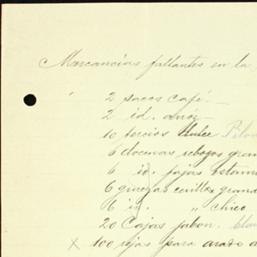 Mercancías faltantes en la
2 sacos café.
2 id. arroz
10 tercios dulce
6 docenas rebozos gran
6 id. fajas estam
6 gruesas cerillos grand
6 id. " chico
20 Cajas jabon.
x 100 rejas para arado a